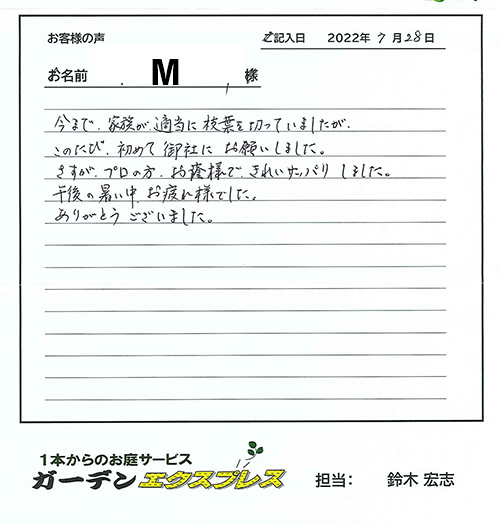 お客様の声
ご記入日 2022年 7月28日
お名前 M 様
今まで、家族が、適当に枝葉を切っていましたが、
このたび、初めて御社に お願いしました。
さすが、プロの方、お蔭様で、きれいサッパリ しました。
午後の暑い中、お疲れ様でした。
ありがとう ございました。
1本からのお庭サービス
ガーデンエクスプレス
担当: 鈴木 宏志